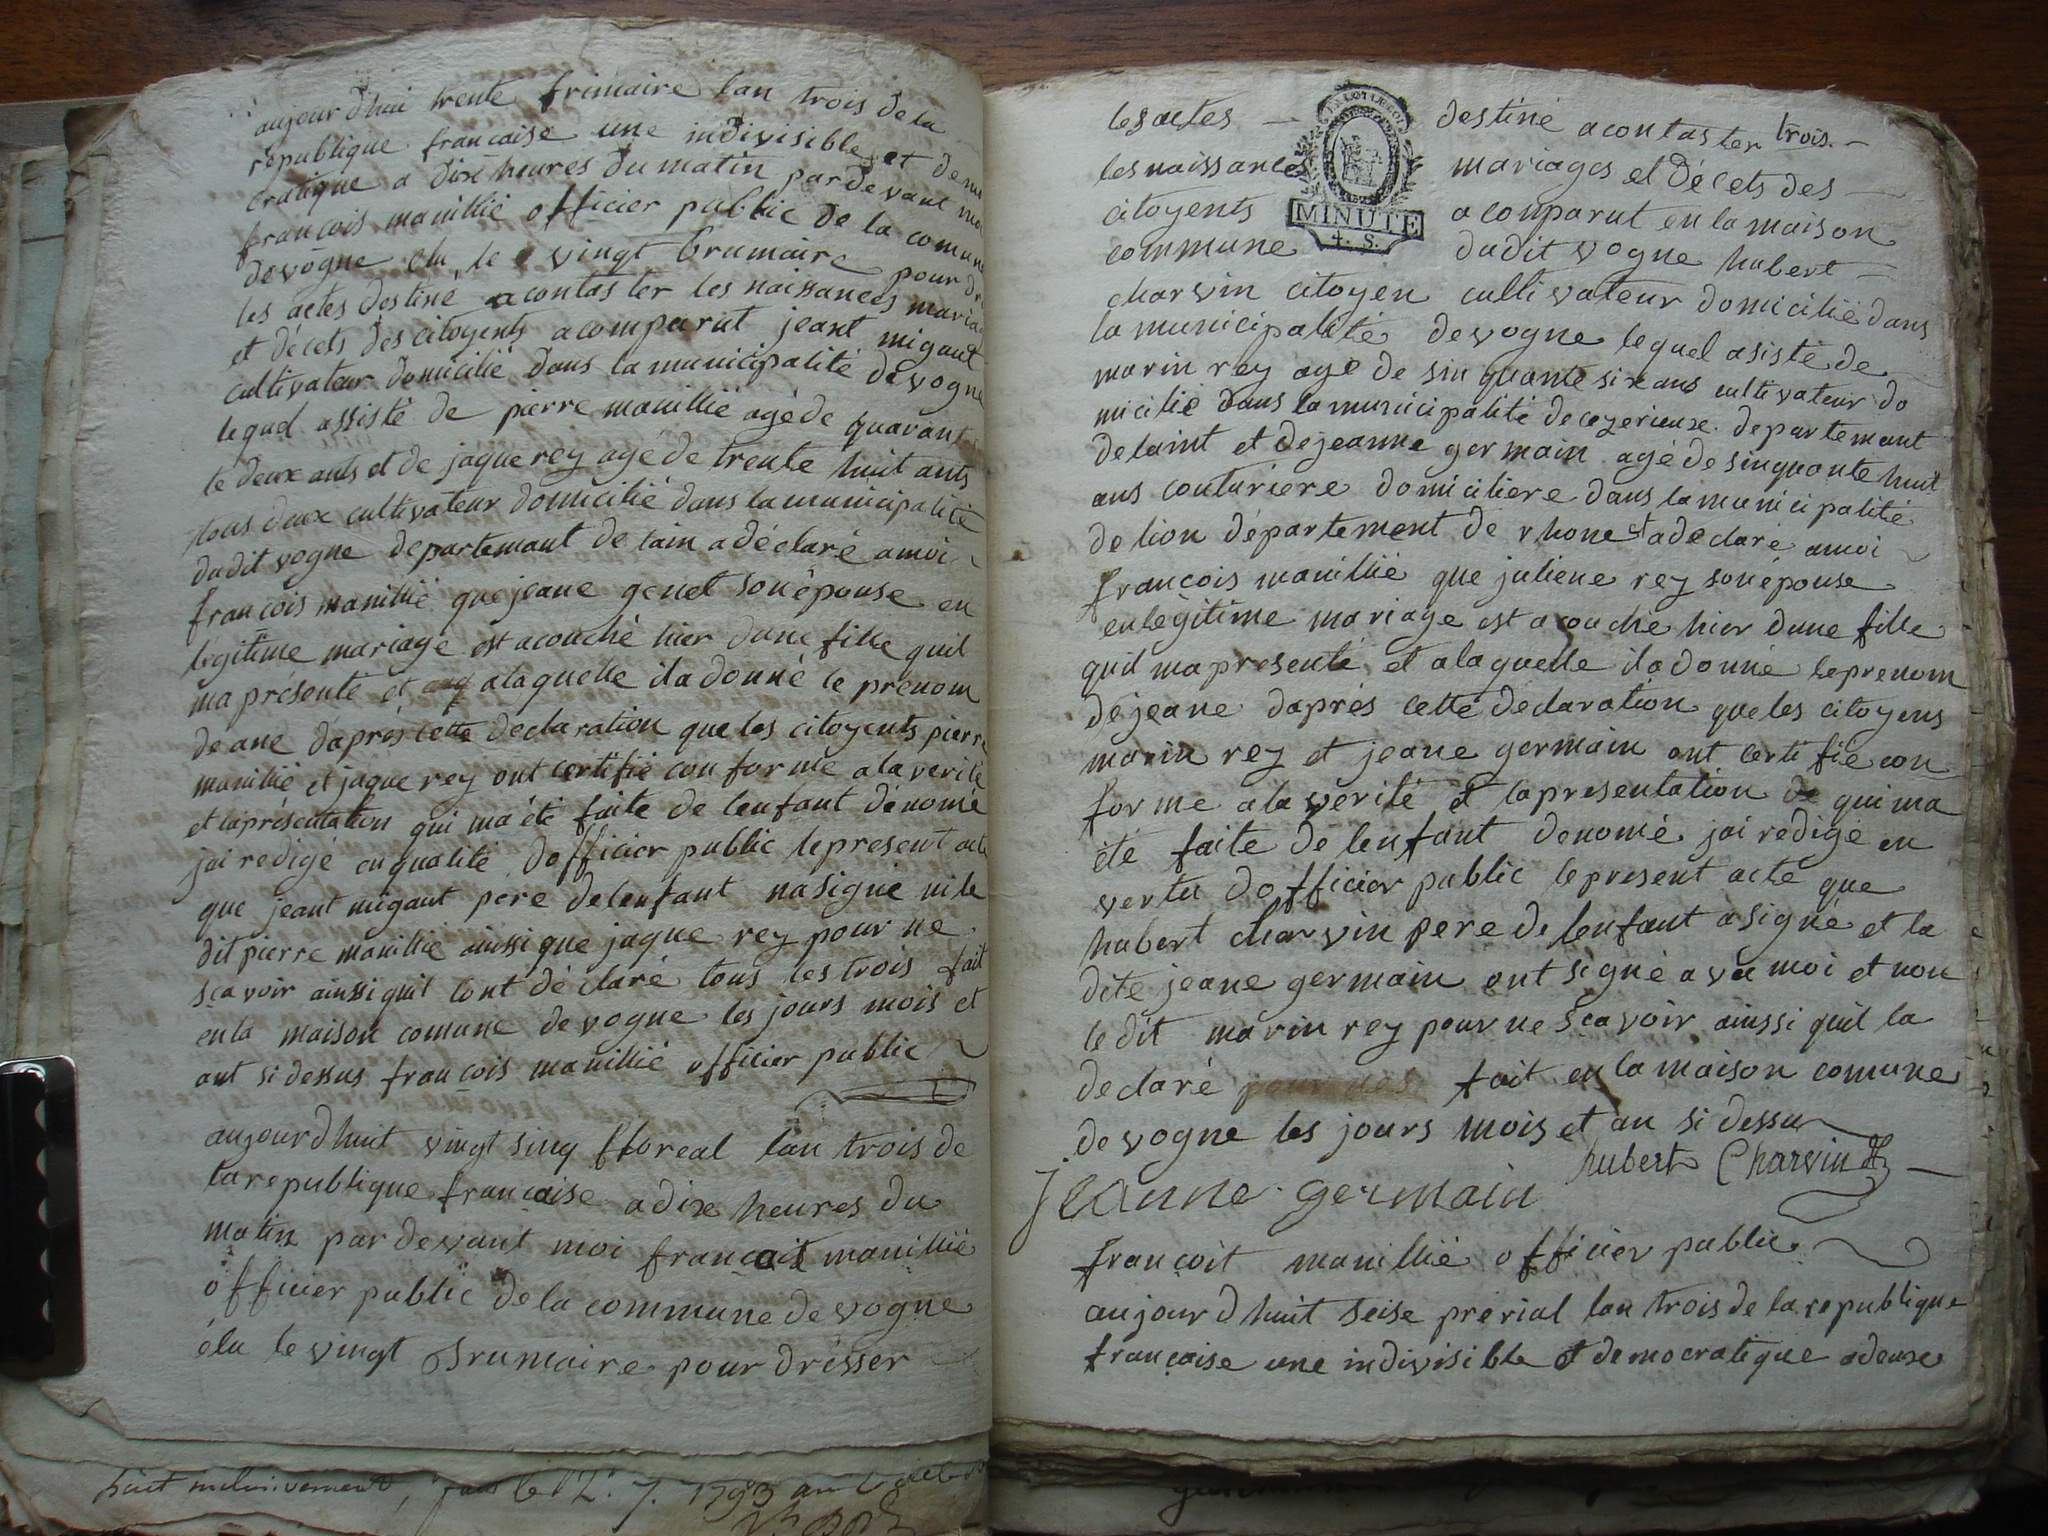 aujourdhui trente frimaire lan trois dela
republique francaise une indivisible et demo
cratique a dixe heures du matin pardevant moi
francois maniллié officier public de la comune
devogne elu le vingt brumaire pour dr
les actes destiné acontaster les naissances mariag
et décets des citoyents acomparut jeant migant
cultivateur domicilié dans la municipalité devogne
lequel assisté de pierre manillié agé de quarant
te deux ants et de jaque rey agé de trente huit ants
tous deux cultivateur domicilié dans la municipalité
dudit vogne departemant de lain a déclaré amoi
francois manillié que jeane genet son épouse en
legitime mariage est acouché hier dune fille quil
ma présenté et alaquelle ila donné le prenom
de ane daprés cette declaration que les citoyents pierre
manillié et jaque rey ont certifié conforme ala verité
et laprésentation qui ma été faite de lenfant dénomé
jai redigé en qualité dofficier public lepresent acte
que jeant migant pere delenfant nasigné ni le
dit pierre manillié ainssi que jaque rey pour ne
scavoir ainssi quil lont déclaré tous les trois fait
en la maison comune de vogne les jours mois et
ant si dessus francois manillié officier public
aujourdhuit vingt sinq floreal lan trois de
larepublique francaise adixe heures du
matin pardevant moi francoit manillié
officier public de la commune de vogne
élu le vingt Brumaire pour drésser
huit 1793
les actes destiné acontaster trois.
les naissances mariages et décets des
citoyents acomparut en la maison
commune dudit vogne hubert
charvin citoyen cultivateur domicilié dans
la municipalité devogne lequel asisté de
marin rey agé de sinquante six ans cultivateur do
micilié dans la municipalité deceyzerieux departemant
delaint et dejeanne germain agé de sinquante huit
ans couturiere domiciliere dans la municipalité
de lion département de rhone et adeclaré amoi
francois manillié que juliene rey son épouse
enlégitime mariage est acouché hier dune fille
quil mapresenté et alaquelle iladonné leprenom
dejeane daprés cette declaration que les citoyens
marin rey et jeane germain ont certifié con
forme ala verité et lapresentation de qui ma
été faite de lenfant denomé jai redigé en
vertu dofficier public lepresent acte que
hubert charvin pere de lenfant asigné et la
dite jeane germain ont signé avec moi et non
le dit marin rey pour ne scavoir ainssi quil la
declaré fait en la maison comune
de vogne les jours mois et an si dessu
hubert Charvin
jeanne germain
francoit manillié officier public
aujourdhuit seise prerial lan trois de la republique
francaise une indivisible et democratique adeuxe
MINUTE
4. S.